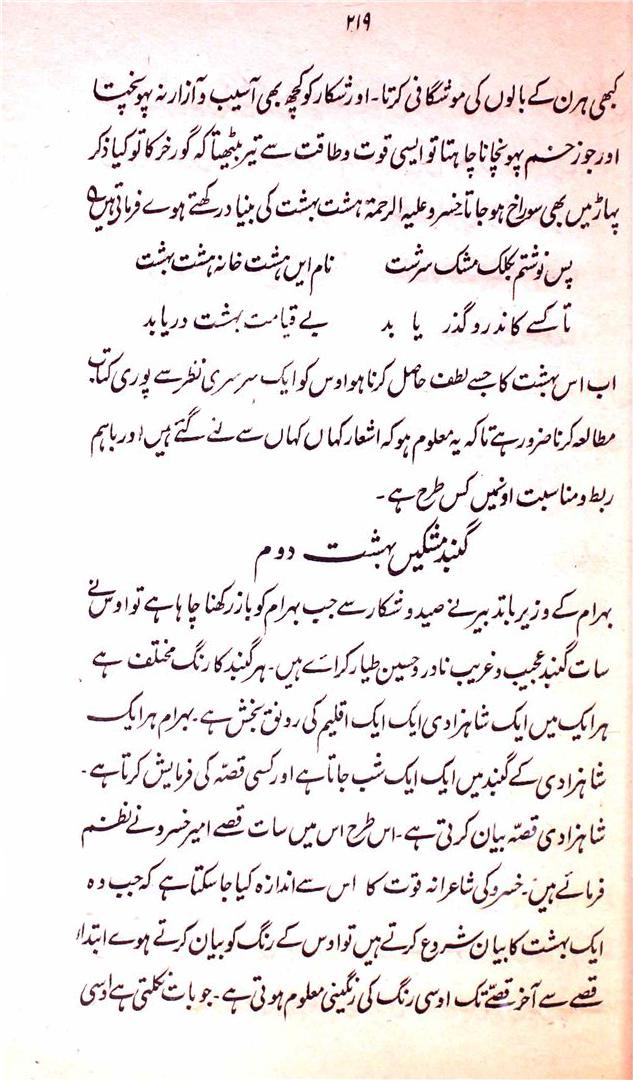 ۲۱۹
کبھی ہرن کے بالوں کی موشگافی کرتا۔ اور شکار کو کچھ بھی آسیب و آزار نہ پہونچتا
اور جو زخم پہونچانا چاہتا تو ایسی قوت و طاقت سے تیر بیٹھتا کہ گورخر کا تو کیا ذکر
پہاڑ میں بھی سوراخ ہو جاتا خسرو علیہ الرحمۃ ہشت بہشت کی بنیاد رکھتے ہوے فرماتی ہیں
پس نوشتم بکلک مشک سرشت نام ایں ہشت خانہ ہشت بہشت
تا کسے کاندرو گذر یابد بے قیامت بہشت دریابد
اب اس بہشت کا جسے لطف حاصل کرنا ہو اوس کو ایک سرسری نظر سے پوری کتاب
مطالعہ کرنا ضرور ہے تاکہ یہ معلوم ہو کہ اشعار کہاں کہاں سے لئے گئے ہیں اور باہم
ربط و مناسبت اونمیں کس طرح ہے۔
گنبد مشکیں بہشت دوم
بہرام کے وزیر باتدبیر نے صید و شکار سے جب بہرام کو باز رکھنا چاہا ہے تو اوس نے
سات گنبد عجیب و غریب نادر و حسین طیار کرائے ہیں۔ ہر گنبد کا رنگ مختلف ہے
ہر ایک میں ایک شاہزادی ایک ایک اقلیم کی رونق بخش ہے۔ بہرام ہر ایک
شاہزادی کے گنبد میں ایک ایک شب جاتا ہے اور کسی قصّہ کی فرمایش کرتا ہے۔
شاہزادی قصّہ بیان کرتی ہے۔ اس طرح اس میں سات قصے امیر خسرو نے نظم
فرمائے ہیں۔ خسرو کی شاعرانہ قوت کا اس سے اندازہ کیا جا سکتا ہے کہ جب وہ
ایک بہشت کا بیان شروع کرتے ہیں تو اوس کے رنگ کو بیان کرتے ہوے ابتداء
قصے سے آخر قصّے تک اوسی رنگ کی رنگینی معلوم ہوتی ہے۔ جو بات نکلتی ہے اوسی